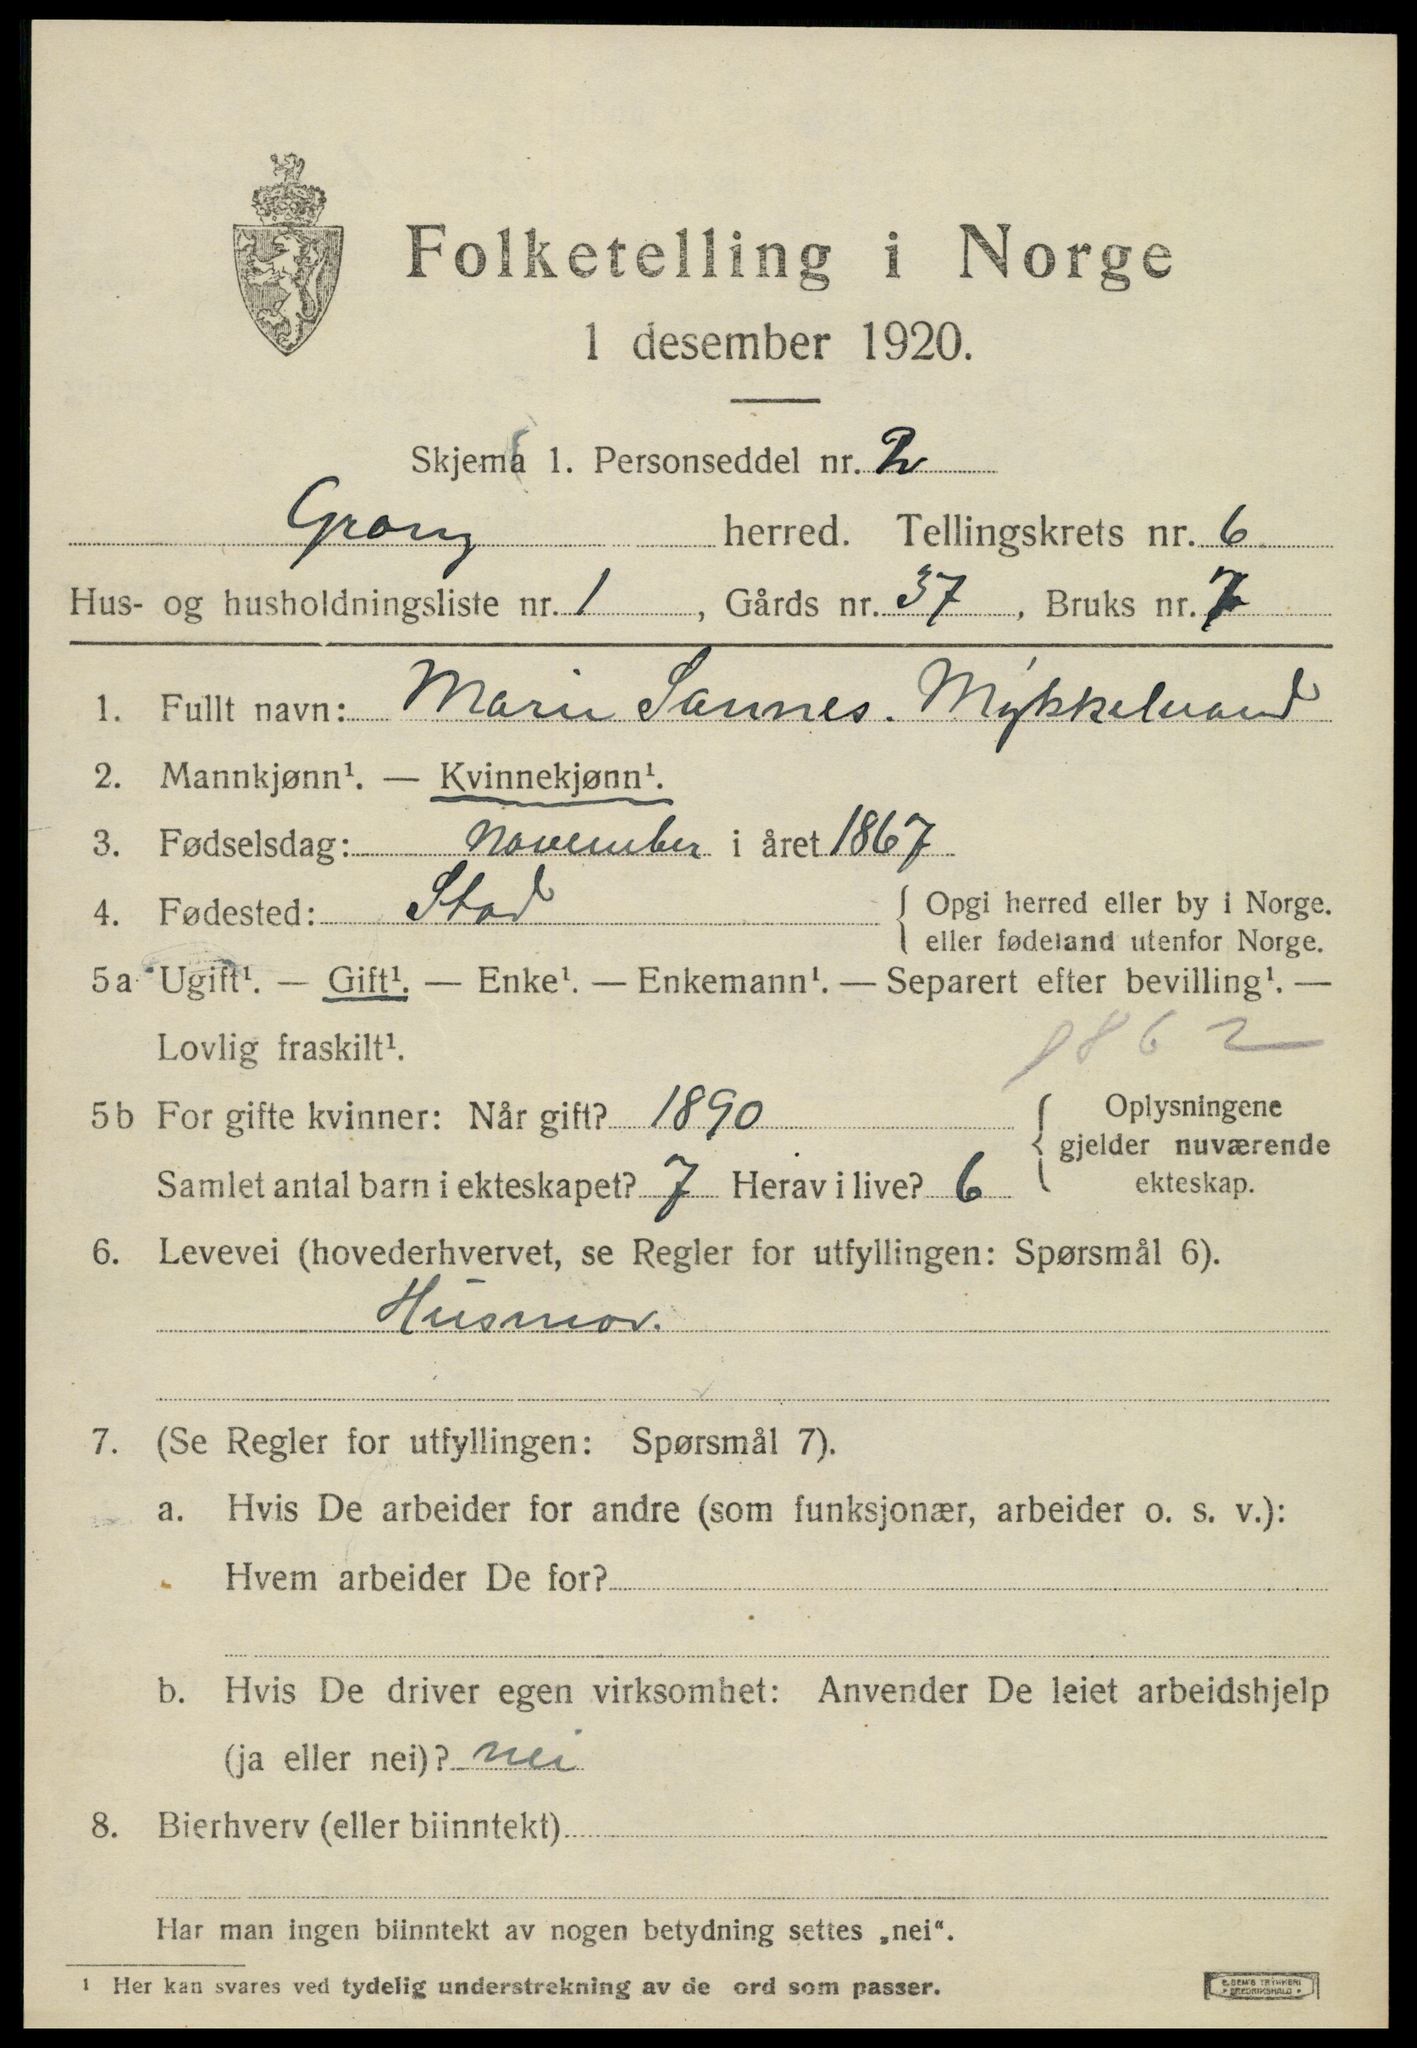 Folketelling i Norge
1 desember 1920.
Skjema 1. Personseddel nr. 2
Grong herred. Tellingskrets nr. 6
Hus- og husholdningsliste nr. 1, Gårds nr. 37, Bruks nr. 7
1. Fullt navn: Marie Sannes. Mykkelvand
2. Mannkjønn¹. — Kvinnekjønn¹.
3. Fødselsdag: november i året 1867
4. Fødested: Stod { Opgi herred eller by i Norge.
eller fødeland utenfor Norge.
5a Ugift¹. — Gift¹. — Enke¹. — Enkemann¹. — Separert efter bevilling¹. —
Lovlig fraskilt¹.
1862
5b For gifte kvinner: Når gift? 1890
Samlet antal barn i ekteskapet? 7 Herav i live? 6
{ Oplysningene
gjelder nuværende
ekteskap.
6. Levevei (hovederhvervet, se Regler for utfyllingen: Spørsmål 6).
Husmor.
7. (Se Regler for utfyllingen: Spørsmål 7).
a. Hvis De arbeider for andre (som funksjonær, arbeider o. s. v.):
Hvem arbeider De for?
b. Hvis De driver egen virksomhet: Anvender De leiet arbeidshjelp
(ja eller nei)? nei
8. Bierhverv (eller biinntekt)
Har man ingen biinntekt av nogen betydning settes „nei“.
¹ Her kan svares ved tydelig understrekning av de ord som passer.
E. SEM'S TRYKKERI
FREDRIKSHALD